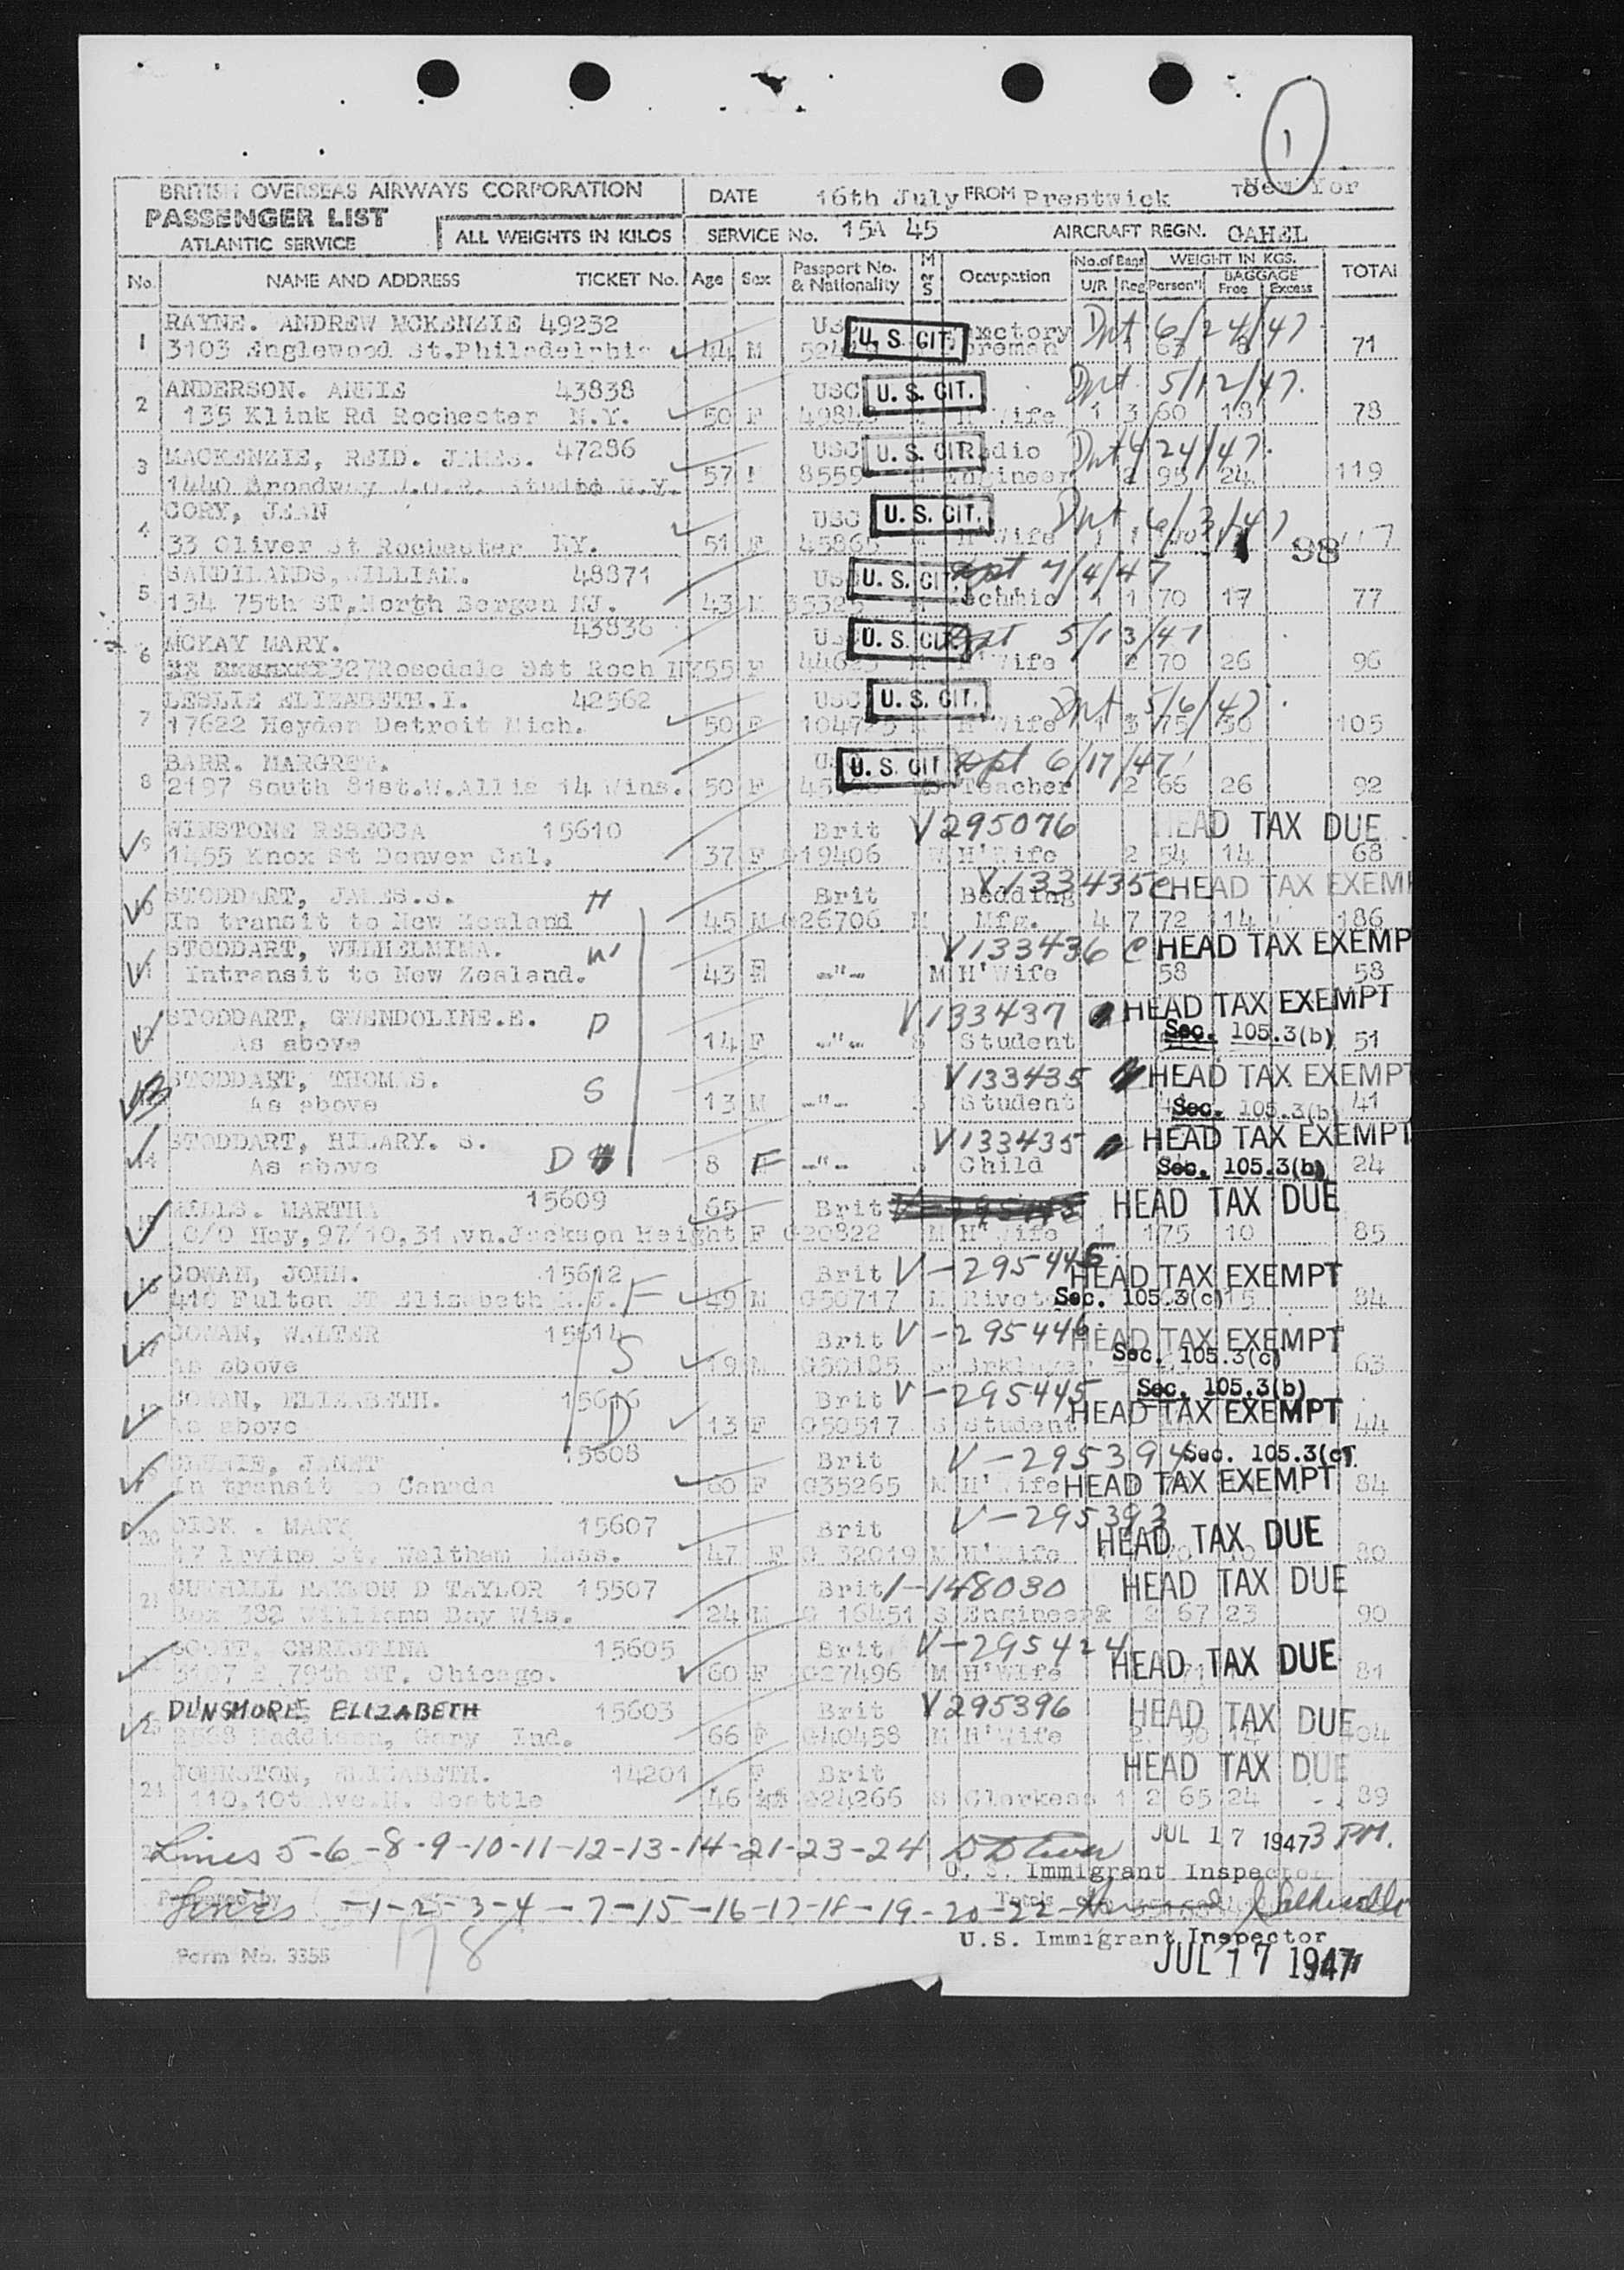 1
BRITISH OVERSEAS AIRWAYS CORPORATION
PASSENGER LIST
ATLANTIC SERVICE
ALL WEIGHTS IN KILOS
DATE 16th July FROM Prestwick TO New Yor
SERVICE No. 15A 45 AIRCRAFT REGN. GAHEL
No. NAME AND ADDRESS TICKET No. Age Sex Passport No. & Nationality M or S Occupation No. of Bags U/R Reg WEIGHT IN KGS. Person'l BAGGAGE Free Excess TOTAL
1 RAYNE. ANDREW MCKENZIE 49232 U. S. CIT. 6/24/47
3103 Englewood St. Philadelphia 44 M 71
2 ANDERSON. ANNIE 43838 USC U. S. CIT. 5/12/47.
135 Klink Rd Rochester N.Y. 50 F H'Wife 1 3 60 18 78
3 MACKENZIE, REID. JAMES. 47286 USC U. S. CIT. Radio 24/47.
1440 Broadway 57 M 8559 Engineer 2 95 24 119
4 CORY, JEAN USC U. S. CIT.
33 Oliver St Rochester NY. 51 F 45865 H'Wife 98
5 SANDILANDS, WILLIAM. 48871 U. S. CIT. 7/4/47
134 75th ST, North Bergen NJ. 43 M 1 1 70 17 77
6 MCKAY MARY. 43836 U. S. CIT. 5/13/47
327 Rosedale St Roch NY 55 F H'Wife 2 70 26 96
7 LESLIE ELIZABETH. I. 42562 USC U. S. CIT. 5/6/47
17622 Heyden Detroit Mich. 50 F H'Wife 1 3 75 30 105
8 BARR. MARGRET. U. S. CIT. 6/17/47
2197 South 81st. W. Allis 14 Wins. 50 F Teacher 2 66 26 92
9 WINSTONE REBECCA 15610 Brit V295076 HEAD TAX DUE
1455 Knox St Denver Cal. 37 F G19406 H'Wife 2 54 14 68
10 STODDART, JAMES. S. H Brit Bedding V133435 HEAD TAX EXEM
In transit to New Zealand 45 M G26706 M Mfg. 4 7 72 114 186
11 STODDART, WILHELMINA. W V133436 HEAD TAX EXEMP
Intransit to New Zealand. 43 F -"- M H'Wife 58 58
12 STODDART, GWENDOLINE. E. D V133437 HEAD TAX EXEMPT
As above 14 F -"- S Student Sec. 105.3(b) 51
13 STODDART, THOMAS. S V133435 HEAD TAX EXEMPT
As above 13 M -"- S Student Sec. 105.3(b) 41
14 STODDART, HILARY. S. D V133435 HEAD TAX EXEMPT
As above 8 F -"- S Child Sec. 105.3(b) 24
15 MARTHA 15609 65 Brit HEAD TAX DUE
C/O Hay, 97/10, 31 Avn. Jackson Height F G20822 M H'Wife 1 1 75 10 85
16 COWAN, JOHN. 15612 F Brit V-295445 HEAD TAX EXEMPT
410 Fulton St Elizabeth N.J. 49 M G50717 M Sec. 105.3(c) 15 84
17 COWAN, WALTER 15614 S Brit V-295446 HEAD TAX EXEMPT
As above 19 M G50185 S Sec. 105.3(c) 63
18 COWAN, ELIZABETH. 15616 D Brit V-295445 Sec. 105.3(b)
As above 13 F G50517 S Student HEAD TAX EXEMPT 44
19 JANET 15608 Brit V-295394 Sec. 105.3(c)
In transit to Canada 60 F G35265 M H'Wife HEAD TAX EXEMPT 84
20 DICK. MARY 15607 Brit V-295393
17 Irvine St. Waltham Mass. 47 F G 32019 M H'Wife HEAD TAX DUE 80
21 D TAYLOR 15507 Brit 1-148030 HEAD TAX DUE
Box 382 Williams Bay Wis. 24 M G 16451 S Engineer 2 67 23 90
SCOTT, CHRISTINA 15605 Brit V-295424 HEAD TAX DUE
3107 E 79th ST. Chicago. 60 F G27496 M H'Wife 81
23 DUNSMORE ELIZABETH 15603 Brit V295396 HEAD TAX DUE
Maddison, Gary Ind. 66 F G40458 M H'Wife 2 90 14 104
24 JOHNSTON, ELIZABETH. 14201 F Brit HEAD TAX DUE
110, 10t Ave. N. Seattle 46 G24266 S Clerkess 1 2 65 24 89
Lines 5-6-8-9-10-11-12-13-14-21-23-24 JUL 17 1947 3 PM.
U. S. Immigrant Inspector
Prepared by Totals
Lines -1-2-3-4-7-15-16-17-18-19-20-22
U.S. Immigrant Inspector
JUL 17 1947
Form No. 3355
178